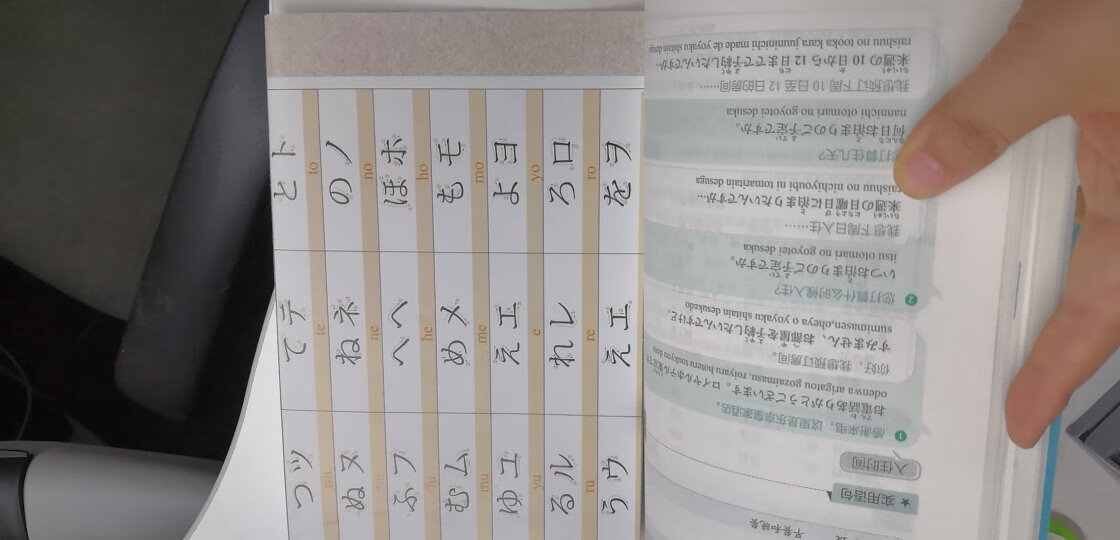 つツ てテ とト
tsu te to
ぬヌ ねネ のノ
nu ne no
ふフ へヘ ほホ
fu he ho
むム めメ もモ
mu me mo
ゆユ えエ よヨ
yu e yo
るル れレ ろロ
ru re ro
うウ えエ をヲ
★ 实用语句
入住时间
1 感谢来电，这里是东京皇家酒店。
お電話ありがとうございます。ロイヤルホテル東京です
odenwa arigatou gozaimasu. roiyaru hoteru toukyou desu
你好，我想预订房间。
すみません、お部屋を予約したいんですけど。
sumimasen,oheya o yoyaku shitain desukedo
2 您打算什么时候入住？
いつお泊まりのご予定ですか。
itsu otomari no goyotei desuka
我想下周日入住……
来週の日曜日に泊まりたいんですが…
raishuu no nichiyoubi ni tomaritain desuga
打算住几天？
何日お泊まりのご予定ですか。
nannichi otomari no goyotei desuka
我想预订下周 10 日至 12 日的房间……
来週の 10 日から 12 日まで予約したいんですが…
raishuu no tooka kara juuninichi made de yoyaku shitain